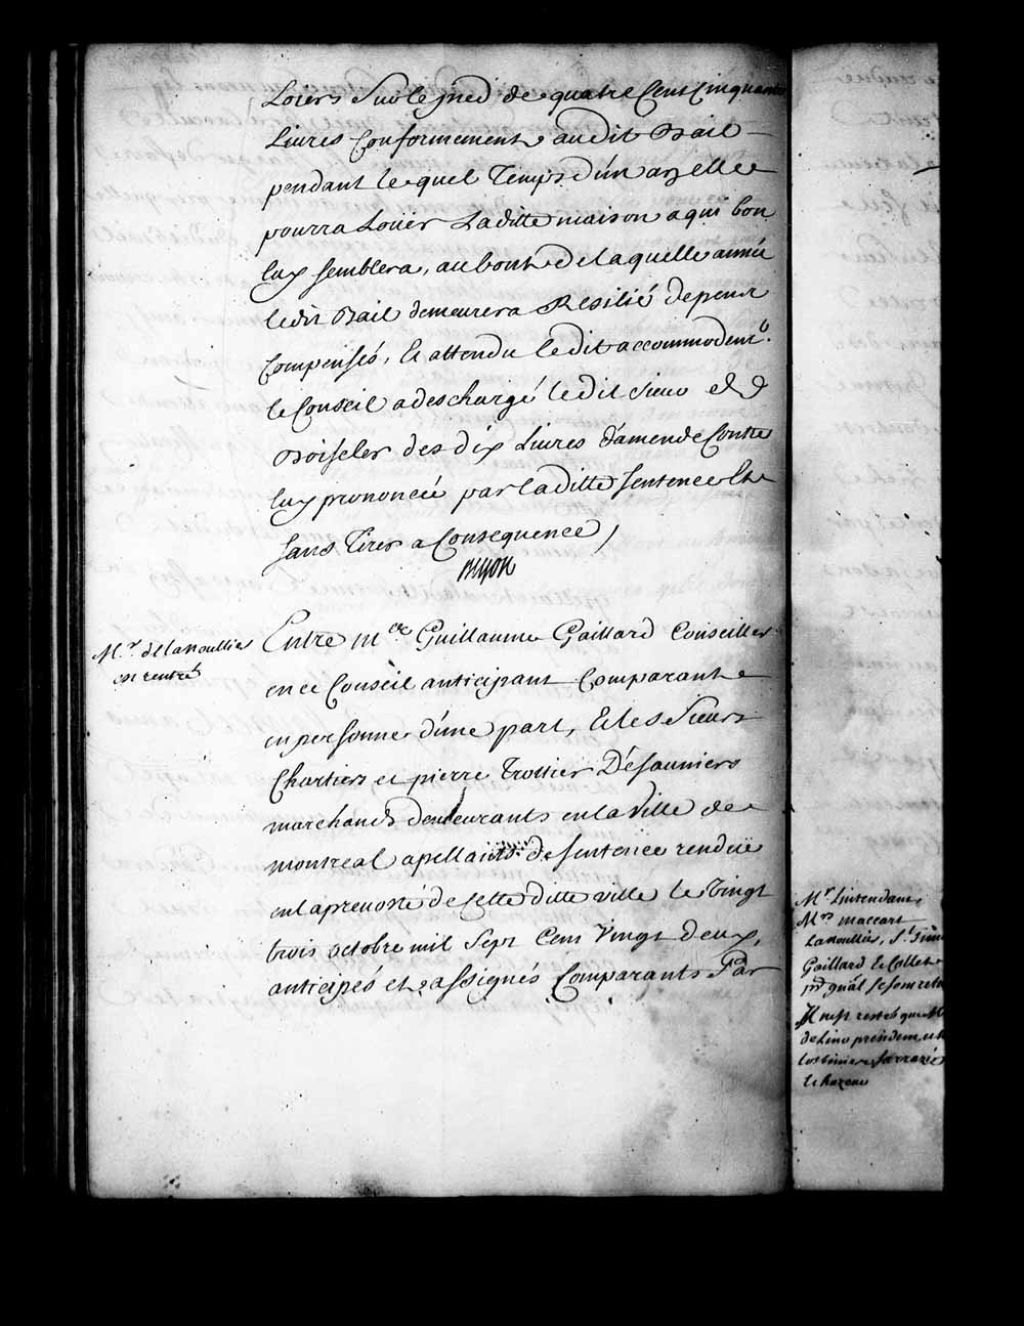 Loiers Sur le pied de quatre Cent Cinquante
Livres Conformement audit Bail
pendant lequel Temps d'un an elle
pourra Loüer Laditte maison a qui bon
luy semblera, au bout de laquelle année
ledit Bail demeurera Resilié depens
Compensés, Et attendu ledit accommodemt.
le Conseil a deschargé ledit Sieur
Boiseler des dix Livres d'amende Contre
luy prononcée par laditte sentence Et
sans Tirer a Consequence /
Begon
Mr. delanoullier
est rentré
Entre Me. Guillaume Gaillard Conseiller
en ce Conseil anticipant Comparant
en personne d'une part, Et les Sieurs
Chartiers et pierre Trottier Désauniers
marchands demeurants en la Ville de
montreal apellants de sentence rendue
en la prevosté de Cette ditte ville le Vingt
trois octobre mil Sept Cent Vingt deux,
anticipés et assignés Comparants Par
Mr. Lintendant,
Mrs. maccart
Lanoullier, St. Simon
Gaillard Et Collet
pr. gnãl se sont retirés
Il n'est resté que
de Lino
Sarrazin